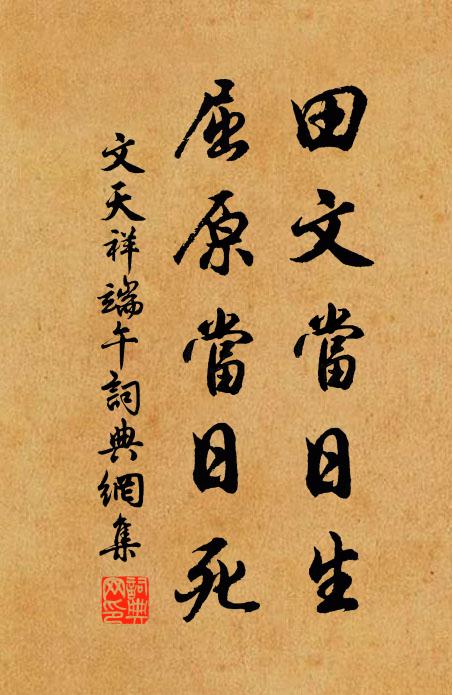 田文當日生
屈原當日死
文天祥端午詞典網集
詞典网印